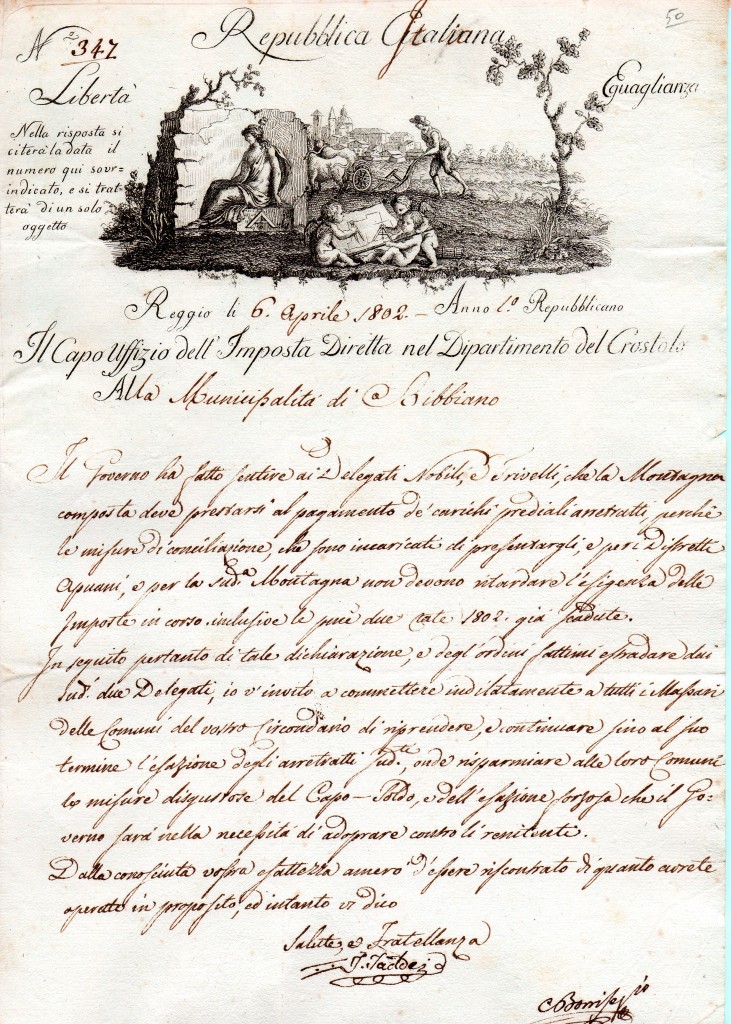 50
N.º 347
Repubblica Italiana
Libertà
Eguaglianza
Nella risposta si
citerà la data il
numero qui sovr=
indicato, e si trat=
terà di un solo
oggetto
Reggio li 6. Aprile 1802. — Anno 1.º Repubblicano
Il Capo Uffizio dell'Imposta Diretta nel Dipartimento del Crostolo
Alla Municipalità di Bibbiano
Il Governo ha fatto sentire ai Delegati Nobili, e Trivelli, che la Montagna
composta deve prestarsi al pagamento de' carichi prediali arretratti, perchè
le misure di conciliazione, che sono incaricati di presentargli, e per i Distretti
Apuani, e per la sud.ª Montagna non devono ritardare l'esigenza delle
Imposte in corso inclusive le due rate 1802. già scadute.
In seguito pertanto di tale dichiarazione, e degl'ordini fattimi estradare dai
sud.i due Delegati, io v'invito a commettere inditatamente a tutti i Massari
delle Comuni del vostro Circondario di riprendere, e continuare sino al suo
termine l'esazione degli arretratti sud.ti, onde risparmiare alle loro Comuni
le misure disgustose del Capo-Soldo, e dell'esazione forzosa che il Go-
verno sarà nella necessità di adoprare contro li renitenti.
Dalla conosciuta vostra esattezza amerò d'essere riscontrato di quanto avrete
operato in proposito, ed intanto vi dico
Salute, e Fratellanza